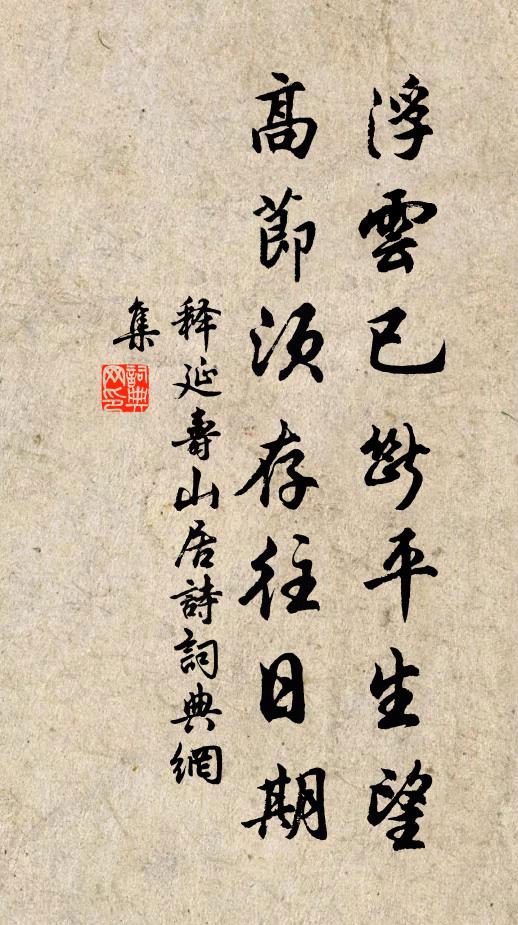 浮雲已斷平生望
高節須存往日期
释延壽山居詩詞典網
集
詞典
网印